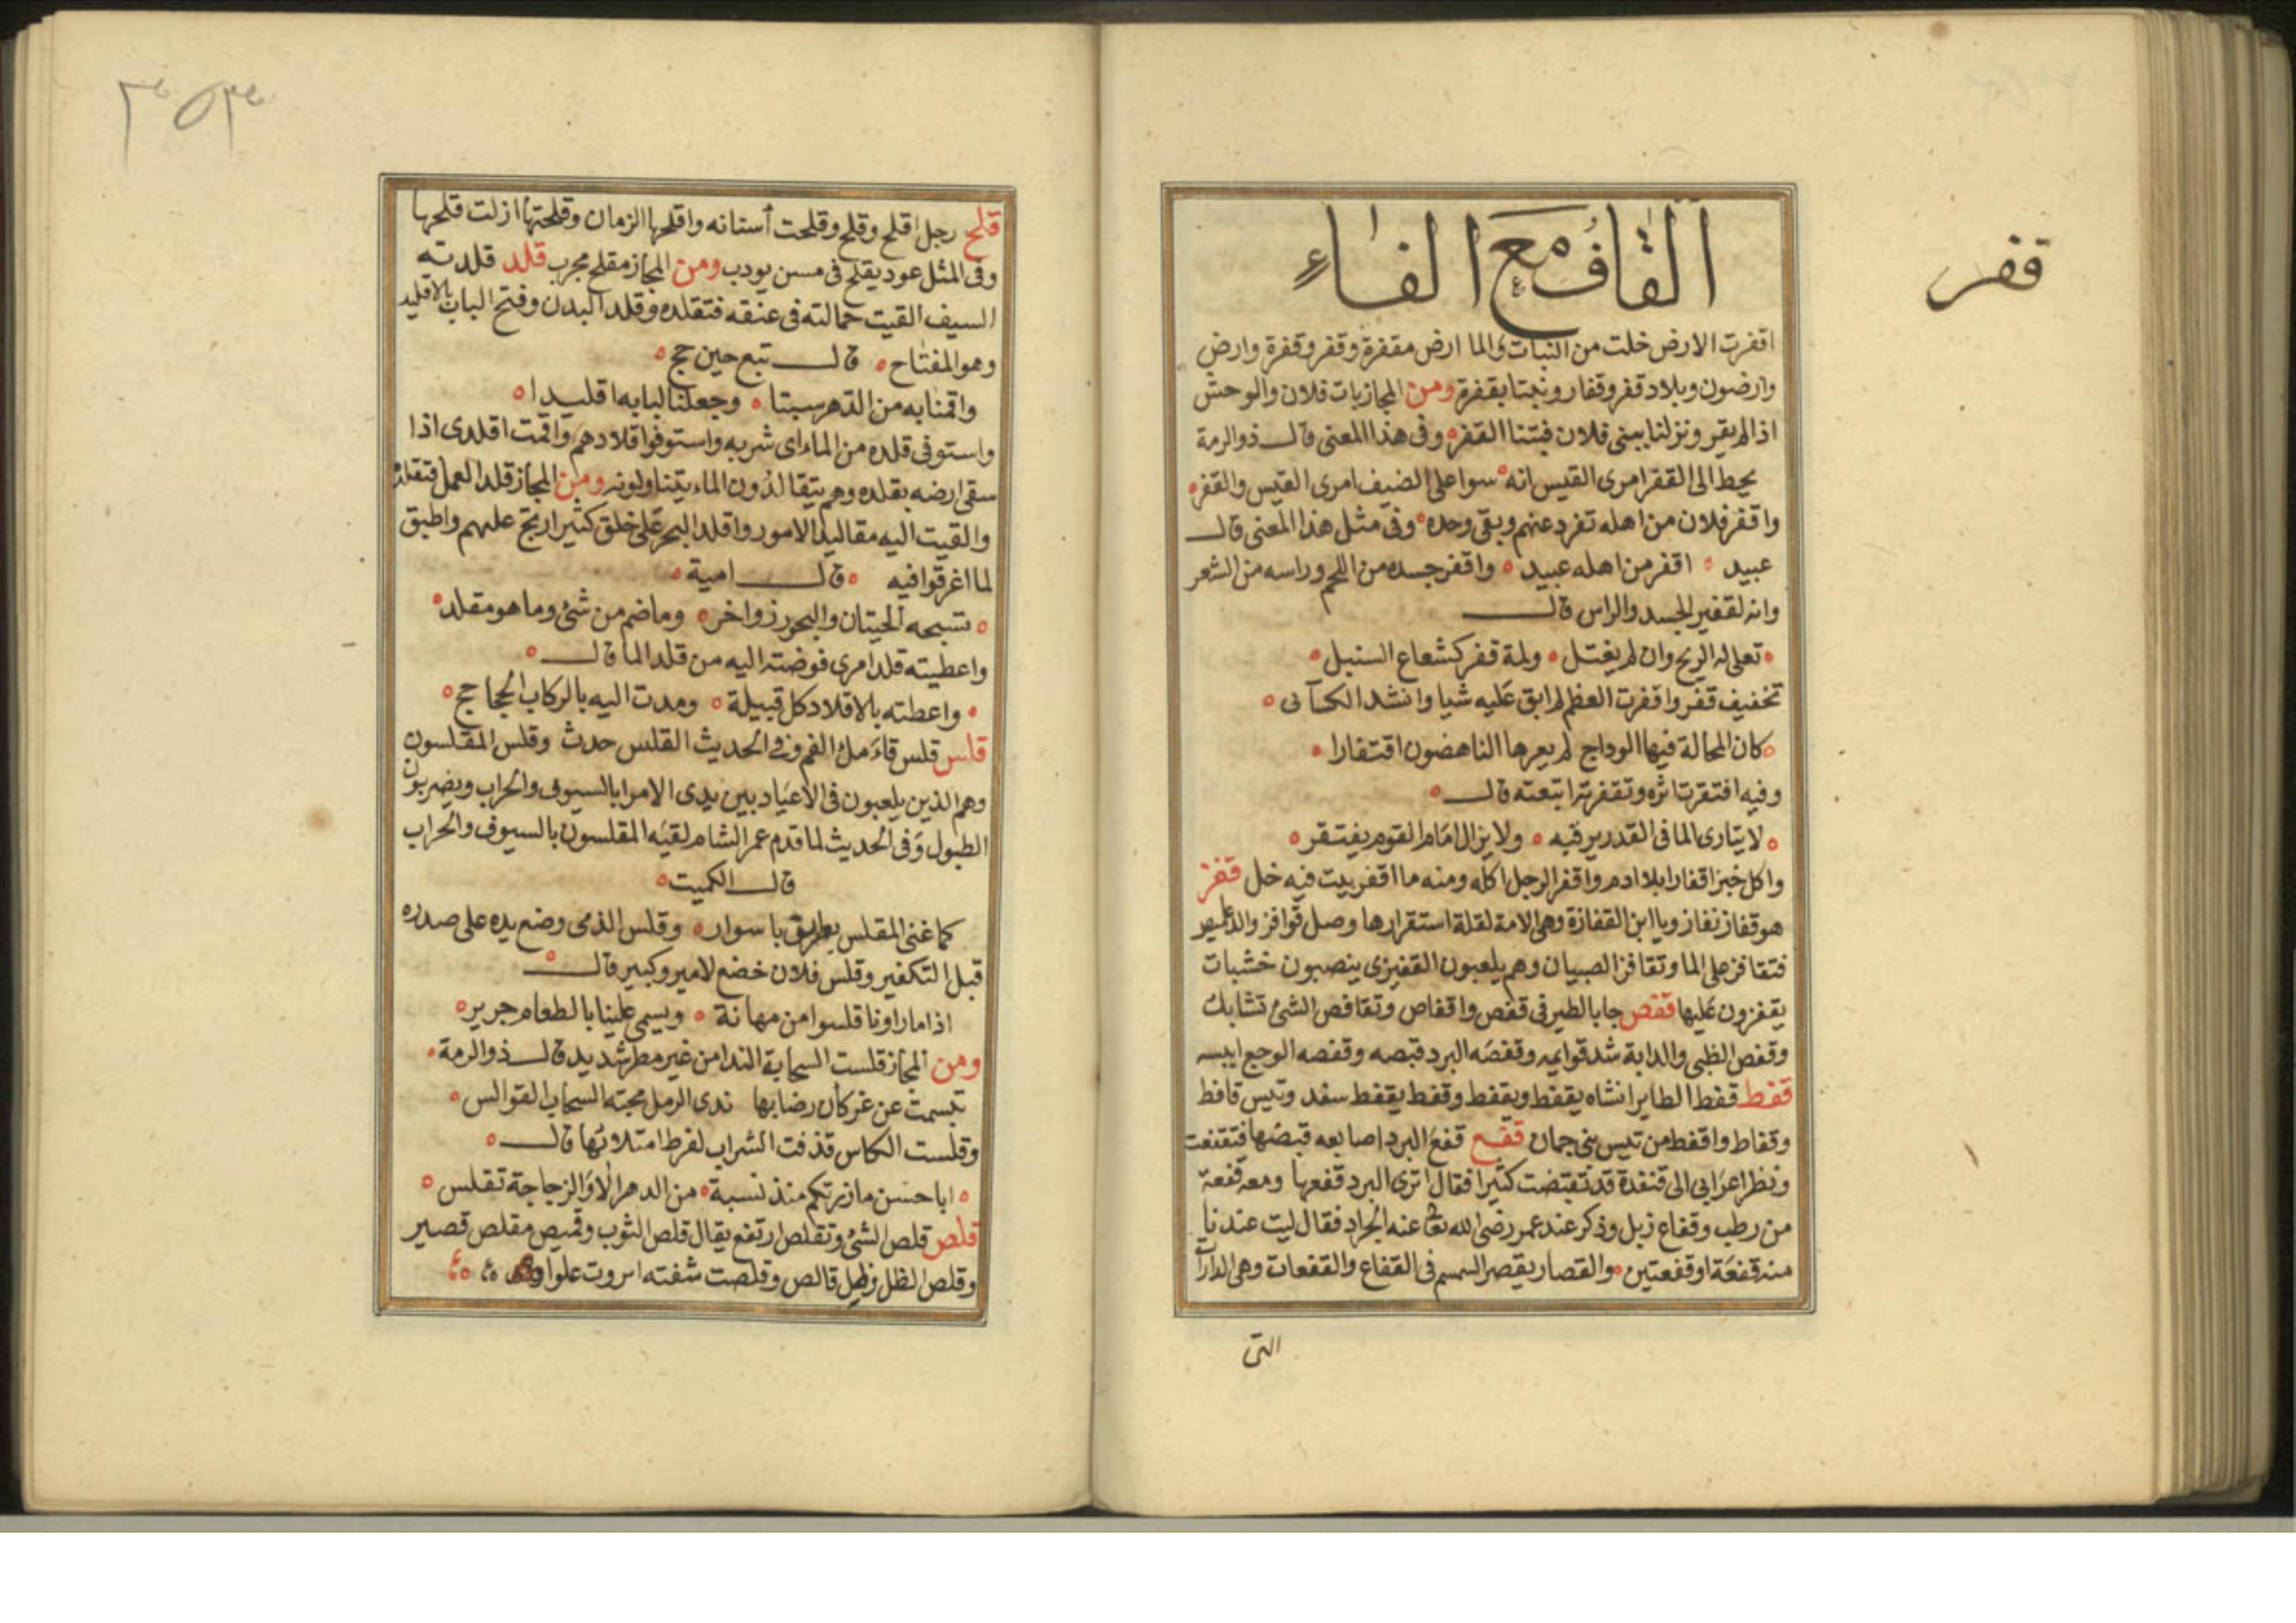 القاف مع الفاء
قفر
اقفرت الارض خلت من النبات والما ارض مقفرة وقفر وقفرة وارض
وارضون وبلاد قفر وقفار وبتنا بقفرة ومن المجاز بات فلان والوحش
اذا لم يقر ونزلنا ببنى فلان فبتنا القفر وفى هذا المعنى قال ذو الرمة
يحط الى القفر امرى القيس انه سوا على الضيف امرى القيس والقفر
واقفر فلان من اهله تفرد عنهم وبقى وحده وفى مثل هذا المعنى قال
عبيد اقفر من اهله عبيد واقفر جسده من اللحم وراسه من الشعر
وانه لقفير الجسد والراس قال
تعلى له الريح وان لم يغتسل ولمة قفر كشعاع السنبل
تخفيف قفر واقفرت العظم لم ابق عليه شيا وانشد الكسآئى
كان المحالة فيها الوداج لم يعرها الناهضون اقتفارا
وفيه اقتفرت اثره وتقفرته اتبعته قال
لا يتارى لما فى القدر يرقبه ولا يزال امام القوم يقتفر
واكل خبز اقفارا بلا ادم واقفر الرجل اكله ومنه ما اقفر بيت فيه خل قفز
هو قفاز نفاز ويا ابن القفازة وهى الامة لقلة استقرارها وصل قوافز والدعاميص
فتقافز على الما وتقافز الصبيان وهم يلعبون القفيزى ينصبون خشبات
يقفزون عليها قفص جا بالطير فى قفص واقفاص وتقافص الشئ تشابك
وقفص الظبى والدابة شد قوايمه وقفصه البرد قبصه وقفصه الوجع ايبسه
قفط قفط الطاير انثاه يقفط ويقفط وقفط يقفط سفد وتيس قافط
وقفاط واقفط من تيس بنى جمان قفع قفع البرد اصابعه قبضها فتقفعت
ونظر اعرابى الى قنفذة قد تقبضت كثيرا فقال اترى البرد قفعها ومعه قفعة
من رطب وقفاع زبل وذكر عند عمر رضى الله تعا عنه الجراد فقال ليت عندنا
منه قفعة او قفعتين والقصار يقصر السمسم فى القفاع والقفعات وهى الدارآ
التى
٣٥٣
قلح رجل اقلح وقلح وقلحت أسنانه واقلحها الزمان وقلحتها ازلت قلحها
وفى المثل عود يقلح فى مسن يودب ومن المجاز مقلح مجرب قلد قلدته
السيف القيت حمالته فى عنقه فتقلده وقلد البدن وفتح الباب بالاقليد
وهو المفتاح قال تبع حين حج
واقمنا به من الدهر سبتا وجعلنا لبابه اقليدا
واستوفى قلده من الماء اى شربه واستوفوا قلادهم واقمت اقلدى اذا
سقى ارضه بقلده وهم يتقالدون الماء يتناولونه ومن المجاز قلد العمل فتقلده
والقيت اليه مقاليد الامور واقلد البحر على خلق كثير ارتج عليهم واطبق
لما اغرقوا فيه قال امية
تسبحه الحيتان والبحور زواخر وما ضم من شئ وما هو مقلد
واعطيته قلد امرى فوضته اليه من قلد الما قال
واعطته بالاقلاد كل قبيلة ومدت اليه بالركاب الجحاجح
قلس قلس قاء مل الفم وفى الحديث القلس حدث وقلس المقلسون
وهم الذين يلعبون فى الاعياد بين يدى الامرا بالسيوف والحراب ويضربون
الطبول وفى الحديث لما قدم عمر الشام لقيه المقلسون بالسيوف والحراب
قال الكميت
كما غنى المقلس بطريق باسوار وقلس الذمى وضع يده على صدره
قبل التكفير وقلس فلان خضع لامير وكبير قال
اذا ما راونا قلسوا من مهانة ويسمى علينا بالطعام جرير
ومن المجاز قلست السحابة الندا من غير مطر شديد قال ذو الرمة
تبسمت عن غر كأن رضابها ندى الرمل مجته السحاب القوالس
وقلست الكاس قذفت الشراب لفرط امتلائها قال
ابا حسن ما زرتكم منذ نسبة من الدهر الا والزجاجة تقلس
قلص قلص الشئ وتقلص ارتفع يقال قلص الثوب وقميص مقلص قصير
وقلص الظل وظل قالص وقلصت شفته انزوت علوا